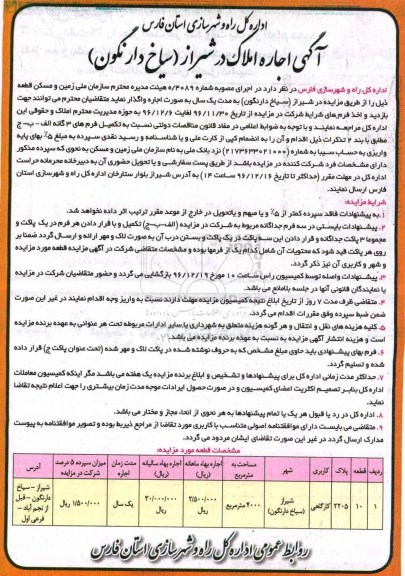 اداره کل راه و شهرسازی استان فارس
آگهی اجاره املاک در شیراز (سیاخ دارنگون)
اداره کل راه و شهرسازی فارس در نظر دارد در اجرای مصوبه شماره ۷/۴۰۸۹ هیئت مدیره محترم سازمان ملی زمین و مسکن قطعه
ذیل را از طریق مزایده در شیراز (سیاخ دارنگون) به مدت یک سال به صورت اجاره واگذار نماید متقاضیان محترم می توانند جهت
بازدید و اخذ فرم‌های شرایط شرکت در مزایده از تاریخ ۹۶/۱۱/۳۰ لغایت ۹۶/۱۲/۶ به حوزه مدیریت محترم املاک و حقوقی این
اداره کل مراجعه نمایند و با توجه به ضوابط اعلامی در مفاد قانون مناقصات دولتی نسبت به تکمیل فرم های ۳ گانه الف - ب - ج
مطابق با بند ۲ تذکرات ذیل اقدام و آن را به انضمام کپی از کارت ملی و یا شناسنامه و رسید نقدی سپرده به مبلغ ۵٪ بهای پایه
واریزی به حساب سیبا به شماره (۲۱۷۳۶۳۳۰۲۱۰۰۰) نزد بانک ملی به نام سازمان ملی زمین و مسکن به نحوی که سپرده مذکور
دارای مشخصات فرد شرکت کننده در مزایده باشد از طریق پست سفارشی و یا تحویل حضوری آن به دبیرخانه محرمانه حراست
اداره کل در مهلت مقرر (حداکثر تا تاریخ ۹۶/۱۲/۱۶ ساعت ۱۴) به آدرس شیراز بلوار ستارخان اداره کل راه و شهرسازی استان
فارس ارسال نمایند.
شرایط مزایده:
۱. به پیشنهادات فاقد سپرده کمتر از ۵٪ و یا مبهم و یا تحویل در خارج از موعد مقرر ترتیب اثر داده نخواهد شد.
۲. پیشنهادات بایستی در سه فرم جداگانه مربوط به شرکت در مزایده (الف-ب-ج) تکمیل و با قرار دادن هر فرم در یک پاکت و
مجموعا ۳ پاکت جداگانه و قرار دادن این سه پاکت در یک پاکت و بستن درب آن به صورت لاک و مهر ارائه و ارسال گردد ضمنا بر
روی هر پاکت قید شود که محتویات آن شامل کدام یک از فرمها بوده و مشخصات متقاضی شرکت در آگهی مزایده قطعه مورد مزایده
و شهر و کاربری آن نیز ذکر گردد.
۳. پیشنهادات واصله توسط کمیسیون راس ساعت ۱۰ مورخ ۹۶/۱۲/۱۹ بازگشایی می گردد و حضور متقاضیان شرکت در مزایده
یا نمایندگان قانونی آنها در جلسه بلامانع می باشد.
۴. متقاضی ظرف مدت ۷ روز از تاریخ ابلاغ نتیجه کمیسیون مزایده مهلت دارند نسبت به واریز وجه اقدام نمایند در غیر این صورت
ضمن ضبط سپرده وفق مقررات اقدام می گردد.
۵. کلیه هزینه های نقل و انتقال و هر گونه هزینه متعلق به شهرداری یا سایر ادارات مربوطه تحت هر عنوانی به عهده برنده مزایده
است و هزینه انتشار آگهی مزایده به نسبت به عهده برنده مزایده می باشد.
۶. فرم بهای پیشنهادی باید حاوی مبلغ مشخص که به حروف نوشته شده در پاکت لاک و مهر شده (تحت عنوان پاکت ج) قرار داده
شده و تسلیم گردد.
۷. حداکثر مدت زمانی اداره کل برای پیشنهادات و تشخیص و ابلاغ برنده مزایده یک هفته می باشد مگر اینکه کمیسیون معاملات
اداره کل بنابر تصمیم اکثریت اعضای کمیسیون و در صورت حصول ایرادات موجه مدت زمان بیشتری را جهت اعلام نتیجه تقاضا
نماید.
۸. اداره کل در رد یا قبول هر یک یا تمام پیشنهادها به هر نحوی از انحاء مجاز و مختار می باشد.
۹. متقاضی می بایست دارای موافقتنامه اصولی متناسب با کاربری مورد تقاضا از مراجع ذیربط بوده و تصویر موافقتنامه به پیوست
مدارک ارسال گردد در غیر این صورت تقاضای ایشان مردود می گردد.
مشخصات قطعه مورد مزایده:
ردیف قطعه پلاک کاربری شهر مساحت به مترمربع اجاره بهاء ماهانه (ریال) اجاره بهاء سالیانه (ریال) مدت زمان اجاره میزان سپرده ۵ درصد شرکت در مزایده آدرس
۱ ۱۰ ۲۲۰۵ کارگاهی شیراز (سیاخ دارنگون) ۴۰۰۰ مترمربع ۲/۵۰۰/۰۰۰ ریال ۳۰/۰۰۰/۰۰۰ ریال یک سال ۱/۵۰۰/۰۰۰ ریال شیراز - سیاخ دارنگون - قبل از نجم آباد - فرعی اول
روابط عمومی اداره کل راه و شهرسازی استان فارس